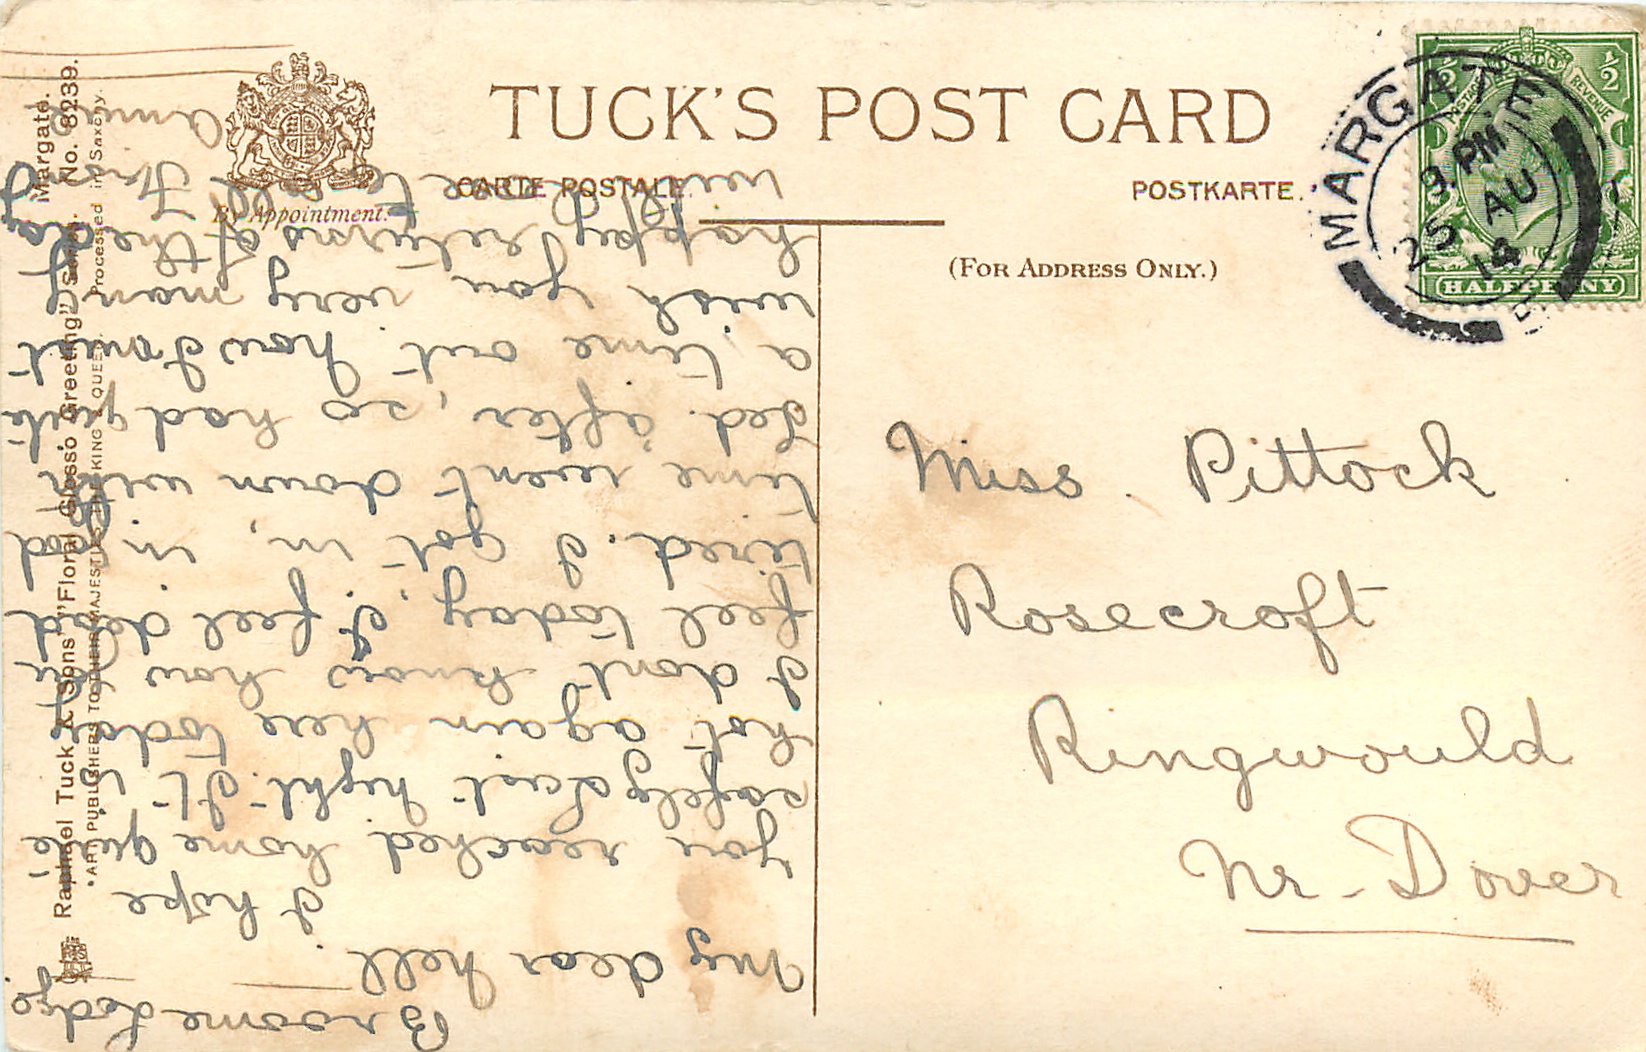 TUCK'S POST CARD
CARTE POSTALE. POSTKARTE.
By Appointment.
(FOR ADDRESS ONLY.)
MARGATE
9. PM
25 AU
14
POSTAGE REVENUE
½ ½
HALFPENNY
Miss Pittock
Rosecroft
Ringwould
Nr. Dover
Broome Lodge
My dear Nell
I hope
you reached home quite
safely last night. It is
hot again here today
I dont know how you
feel today, I feel dead
tired. I got in, in good
time went down with
Led. after, so had quite
a time out. now I must
wish you very many
happy returns of the day
with love to all from
Raphael Tuck & Sons' "Floral Glosso Greeting" Series. No. 8239.
Margate.
ART PUBLISHERS TO THEIR MAJESTIES THE KING & QUEEN. Processed in Saxony.